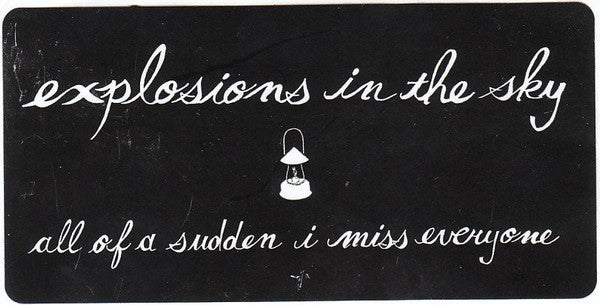 explosions in the sky
all of a sudden i miss everyone